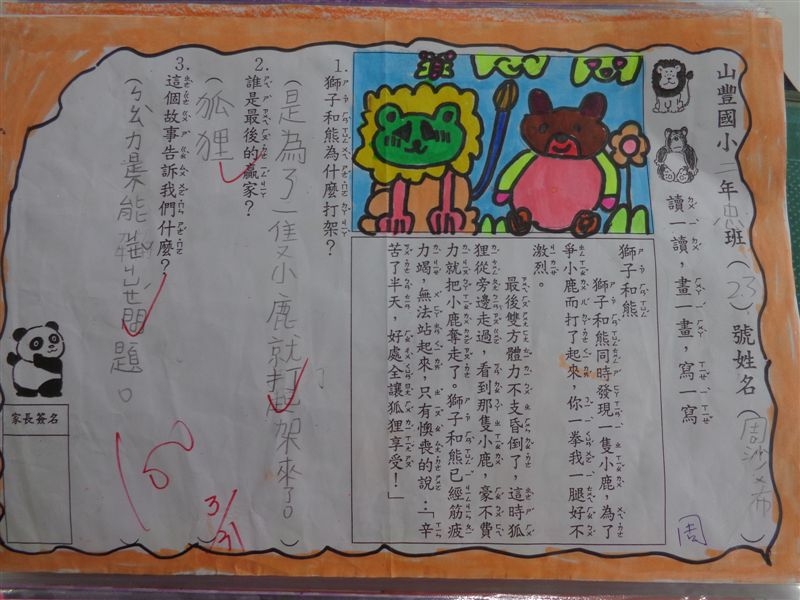 山豐國小二年忠班(23)號姓名(周沙㐅布)
讀一讀,畫一畫,寫一寫
周
獅子和熊
獅子和熊同時發現一隻小鹿,為了
爭小鹿而打了起來,你一拳我一腿好不
激烈。
最後雙方體力不支昏倒了,這時狐
狸從旁邊走過,看到那隻小鹿,豪不費
力就把小鹿奪走了。獅子和熊已經筋疲
力竭,無法站起來,只有懊喪的說:「辛
苦了半天,好處全讓狐狸享受!」
1.獅子和熊為什麼打架?
(是為了一隻小鹿就打起架來了。)
2.誰是最後的贏家?
(狐狸)
3.這個故事告訴我們什麼?
家長簽名
100
3/31